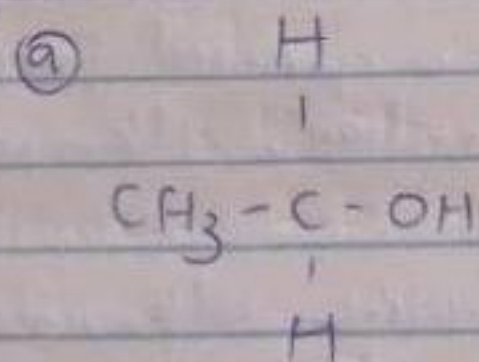 (a) H
|
CH₃ - C - OH
|
H